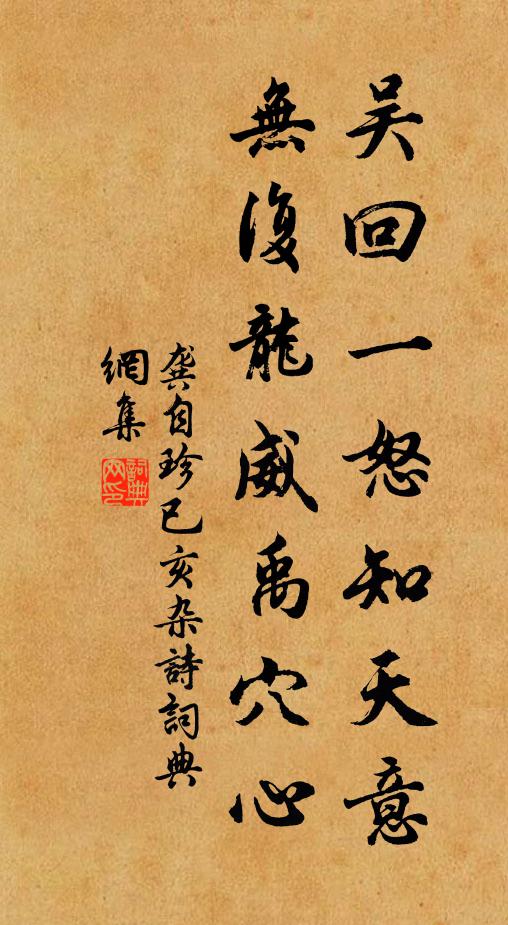 吴回一怒知天意
無復龍威禹穴心
龔自珍己亥杂詩詞典
網集
詞典
网印